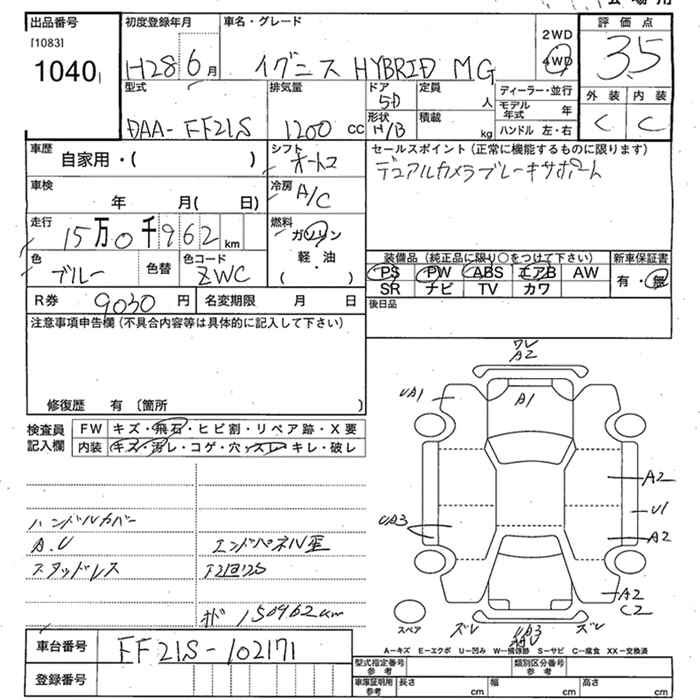 出品番号
[1083]
1040
初度登録年月
H28 6月
車名・グレード
イグニス HYBRID MG
2WD
4WD
評価点
3.5
外装 内装
C C
型式
DAA-FF21S
排気量
1200 cc
ドア
5D
形状
H/B
定員
人
積載
kg
ディーラー・並行
モデル年式 年
ハンドル 左・右
車歴
自家用・( )
シフト
オートマ
車検
年 月( 日)
冷房
A/C
走行
15万0千962km
燃料
ガソリン
軽・油
・
( )
色
ブルー
色替
色コード
ZWC
R券 9030円
名変期限 月 日
セールスポイント(正常に機能するものに限ります)
デュアルカメラブレーキサポート
装備品(純正品に限り○をつけて下さい)
PS PW ABS エアB AW
SR ナビ TV カワ
新車保証書
有・無
後日品
注意事項申告欄(不具合内容等は具体的に記入して下さい)
修復歴 有 〔箇所
検査員記入欄
FW キズ・飛石・ヒビ割・リペア跡・X要
内装 キズ・汚レ・コゲ・穴・スレ・キレ・破レ
ハンドルカバー
A.U
スタッドレス
エンドパネル歪
150962km
ワレ
A2
UA1
A1
A2
U1
UA3
A2
A2
C2
ズレ
UA3
ズレ
スペア
A-キズ E-エクボ U-凹み W-補修跡 S-サビ C-腐食 XX-交換済
車台番号 FF21S-102171
登録番号
型式指定番号 参考
類別区分番号 参考
車庫証明用 参考
長さ cm 幅 cm 高さ cm